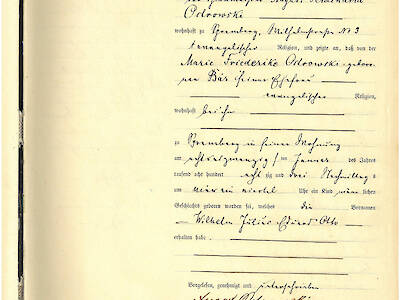 Ostrowski
wohnhaft zu Spremberg, Wilhelmstrasse No 3
evangelischer Religion, und zeigte an, daß von der
Marie Friederike Ostrowski gebore-
nen Bär seiner Ehefrau
evangelischer Religion,
wohnhaft bei ihm
zu Spremberg in seiner Wohnung
am acht und zwanzig ten Januar des Jahres
tausend acht hundert acht zig und drei Nachmittags
um Uhr ein Kind männ lichen
Geschlechts geboren worden sei, welches die Vornamen
Wilhelm Julius Eduard Otto
erhalten habe.
Vorgelesen, genehmigt und unterschrieben
August